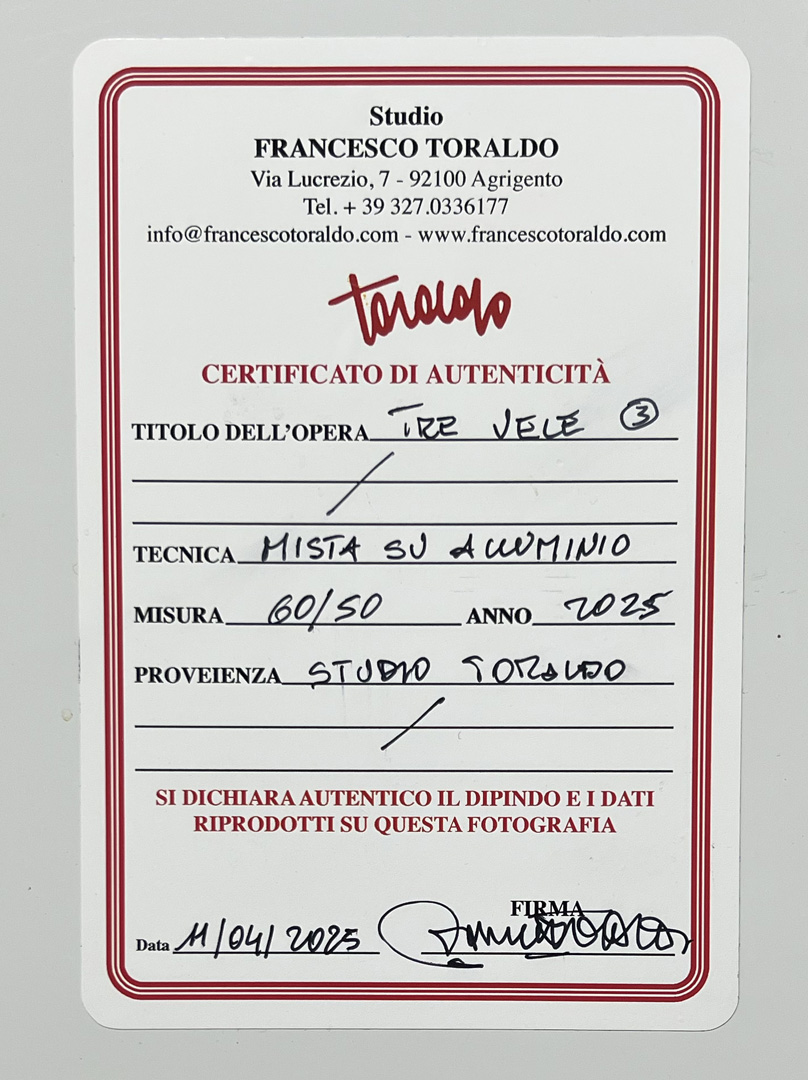 Studio
FRANCESCO TORALDO
Via Lucrezio, 7 - 92100 Agrigento
Tel. + 39 327.0336177
info@francescotoraldo.com - www.francescotoraldo.com
toraldo
CERTIFICATO DI AUTENTICITÀ
TITOLO DELL'OPERA TRE VELE 3
/
TECNICA MISTA SU ALLUMINIO
MISURA 60/50 ANNO 2025
PROVEIENZA STUDIO TORALDO
/
SI DICHIARA AUTENTICO IL DIPINDO E I DATI
RIPRODOTTI SU QUESTA FOTOGRAFIA
FIRMA
Data 11/04/2025